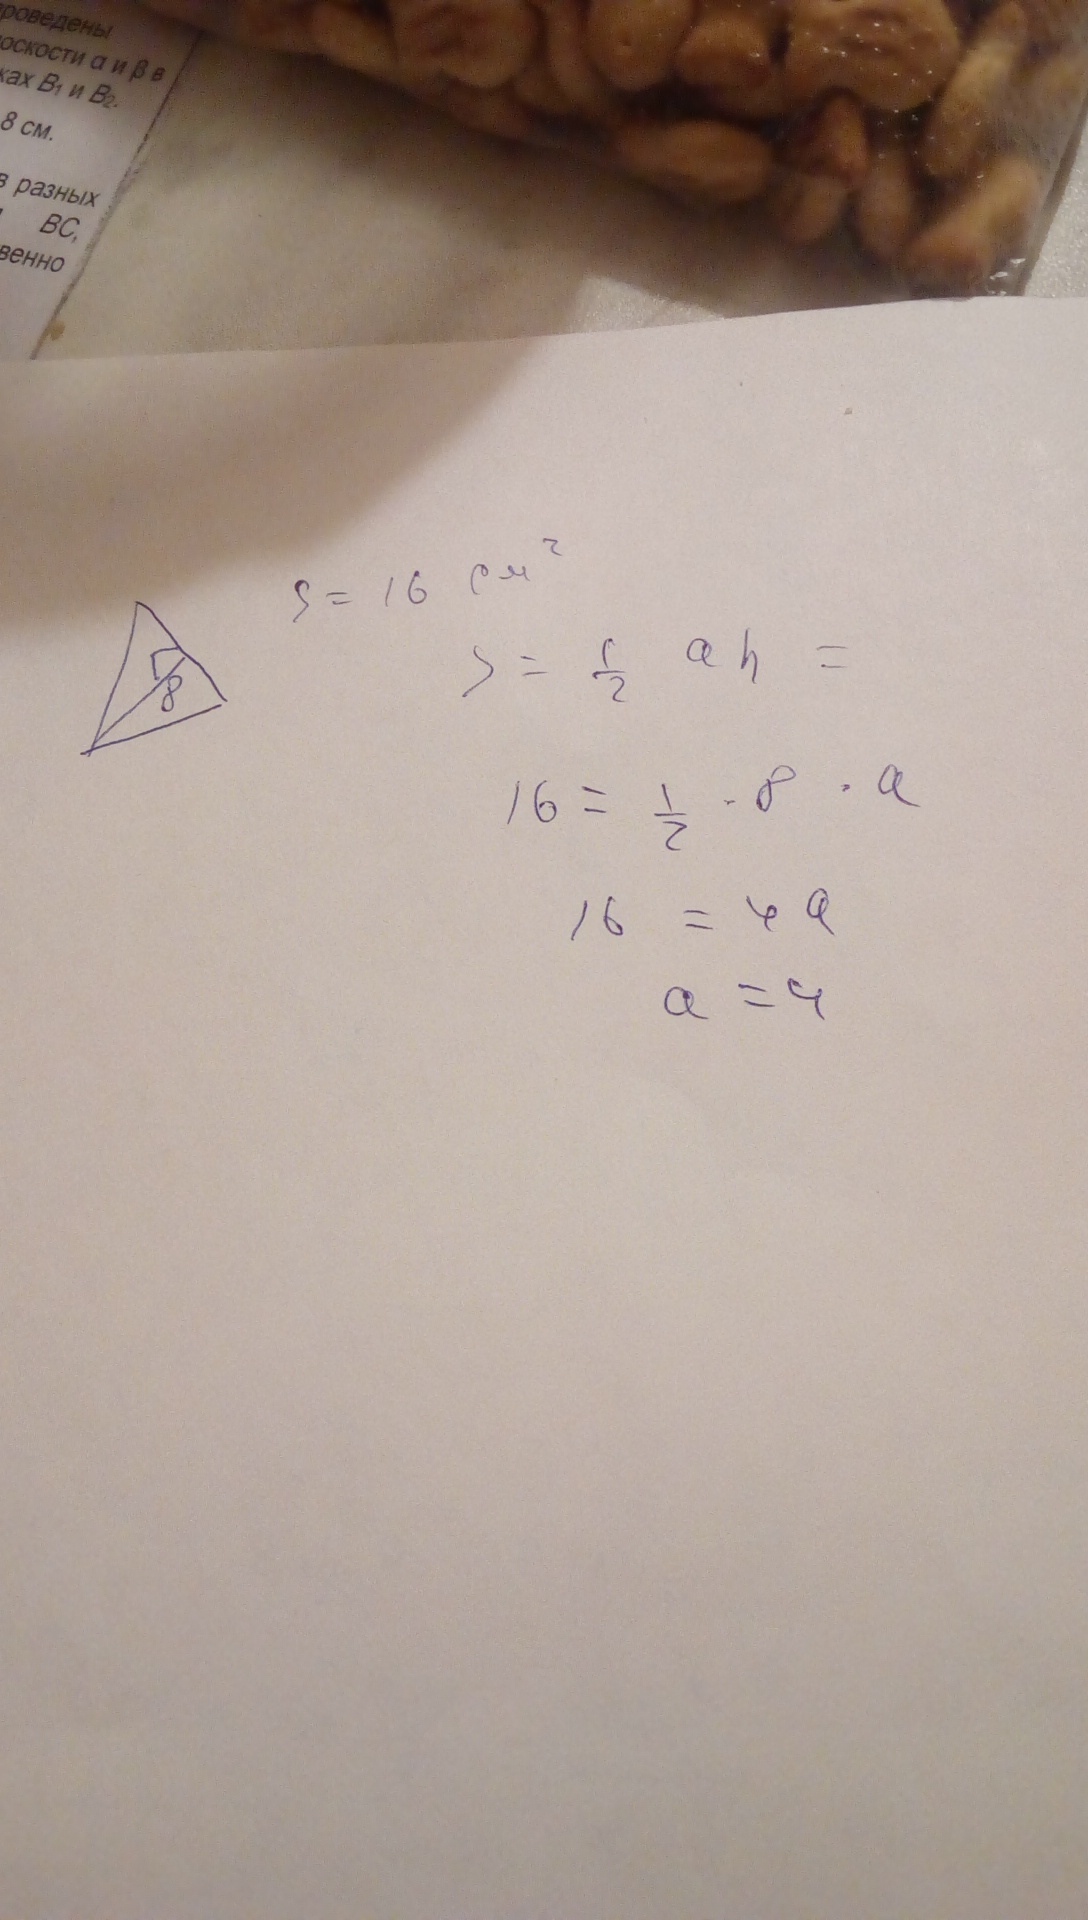 роведены
оскости α и β в
ках B₁ и B₂.
8 см.
в разных
BC,
венно
S = 16 см²
S = 1/2 a h =
8
16 = 1/2 · 8 · a
16 = 4a
a = 4